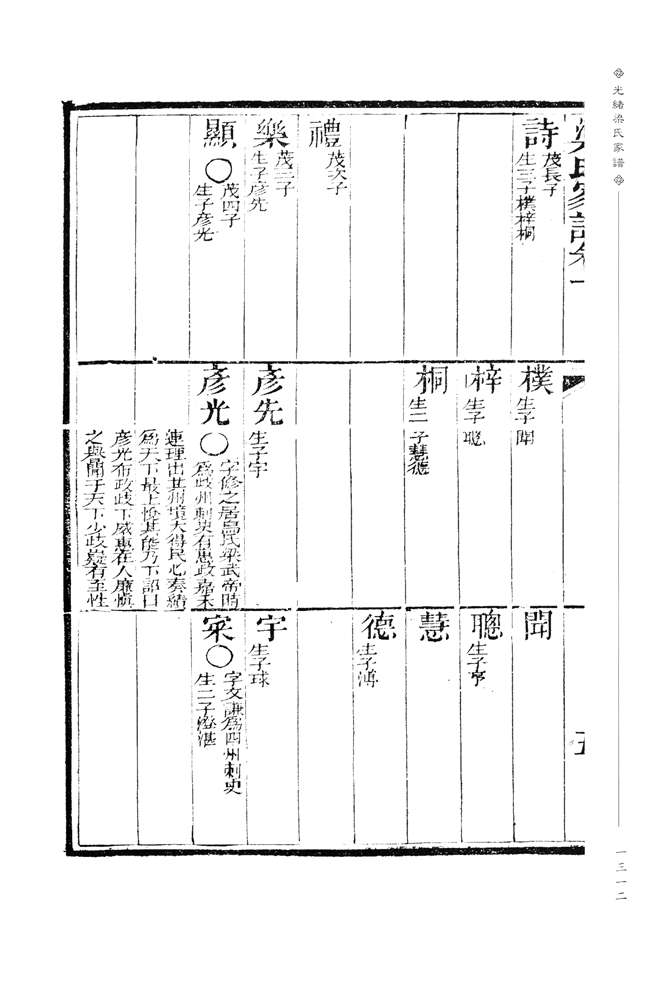 光緒梁氏家譜
梁氏家譜卷一
五
詩
茂長子
生三子樸梓桐
禮
茂次子
樂
茂三子
生子彥先
顯○
茂四子
生子彥光
樸
生子聞
梓
生子聰
桐
生二子慧德
彥先
生子宇
彥光○
字修之居烏氏梁武帝時
爲岐州刺史有惠政嘉禾
連理出其州境大得民心奏績
爲天下最上悅其能乃下詔曰
彥光布政岐下威惠在人廉慎
之譽聞于天下少岐嶷有至性
聞
聰
生子亨
慧
德
生子溥
宇
生子球
寀○
字文謙爲四州刺史
生二子燈湛
一三一二